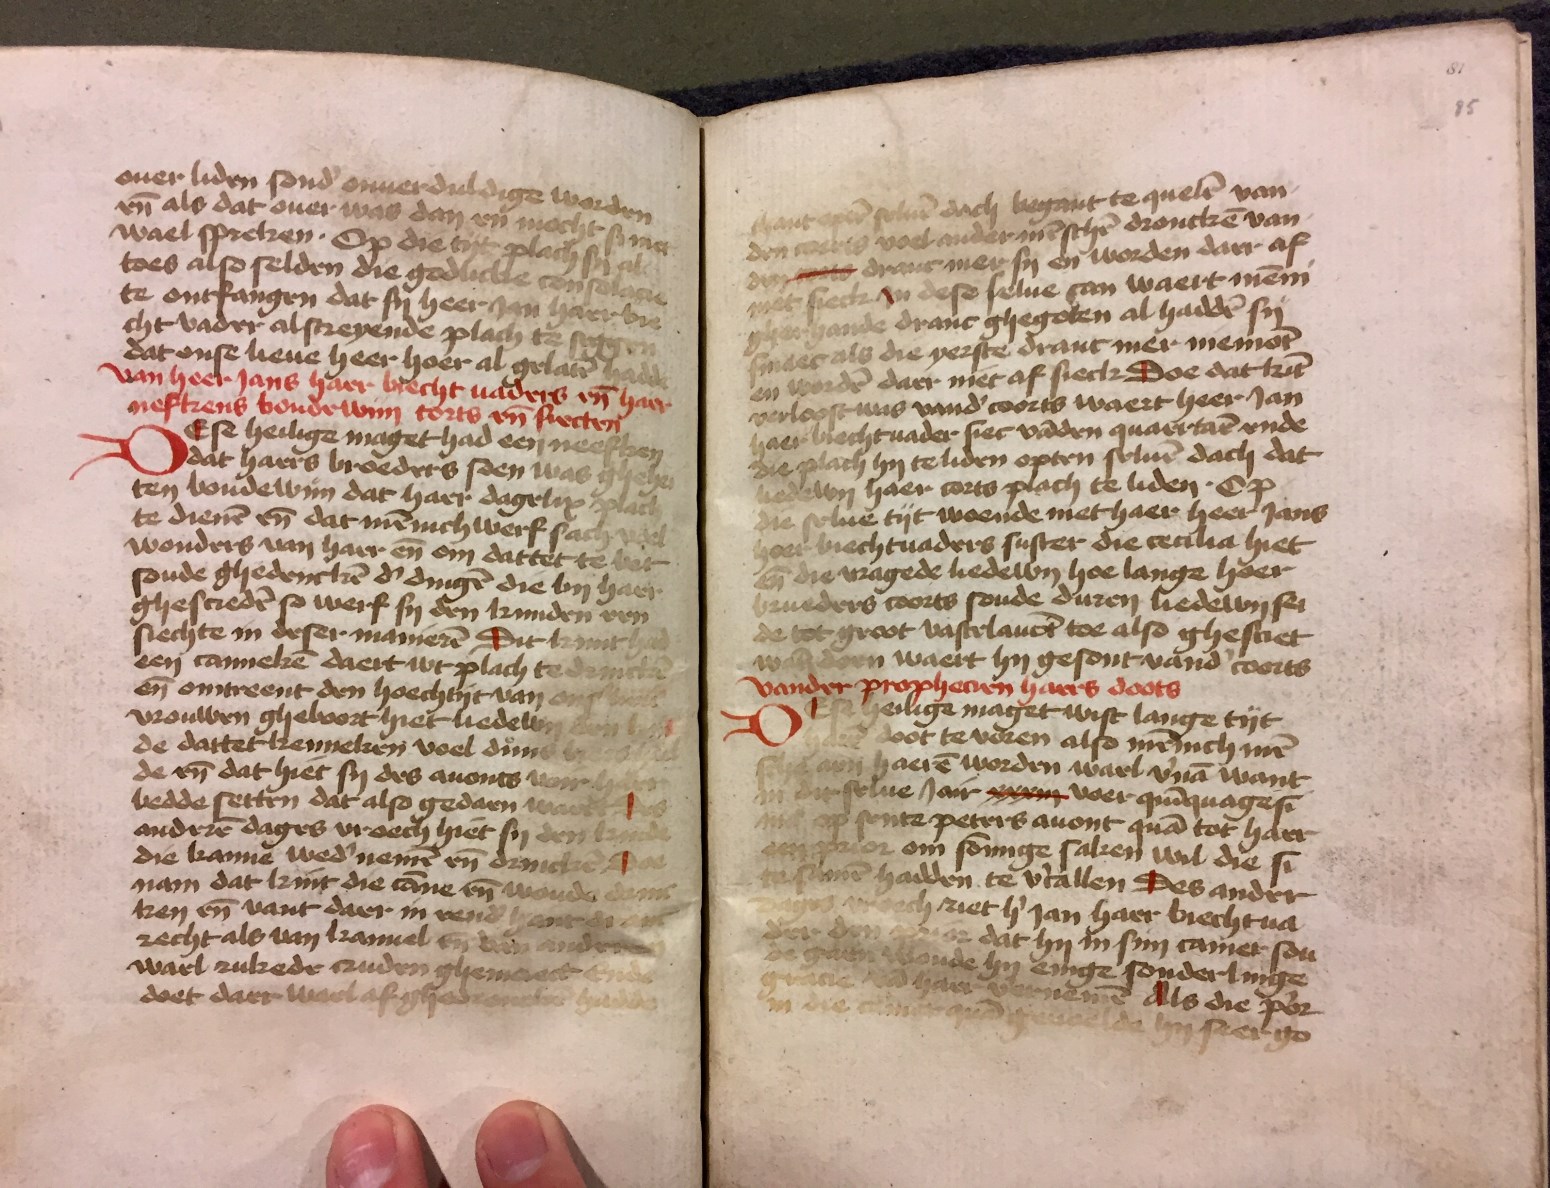 ouer liden sond' onuerduldige worden
en̄ als dat ouer was dan en̄ mocht si niet
wael spreken. Op die tijt plach sij al
toes also selden die godlicke consolacie
te ontfangen dat sij heer Jan haer bie
cht vader al screyende plach te seggen
dat onse lieue heer hoer al gelatē hadde
van heer Jans haer biecht vaders en̄ haer
nefkens boudewijn corts en̄ siecten
Dese heilige maget had een neefken
dat haers broeders soen was ghehe
ten boudewijn dat haer dagelix plach
te dienē en̄ dat mēnich werf sach voel
wonders van haer en̄ om dattet te bet
soude ghedenckē d' dingē die bij haer
ghesciedē so werf sij den kinden een
siechte in deser manierē Dit kint had
een cannekē daert wt plach te drinckē
en̄ omtreent den hoechtijt van onser
vrouwen gheboort hiet liedewy den
de dattet kenneken voel duns
de en̄ dat hiet sij des auonts voir haer
bedde setten dat also gedaen waert Des
anderē dages vroech hiet sij den kinde
die kanne wed' nemē en̄ drinckē Doe
nam dat kint die cāne en̄ woude drinc
ken en̄ vant daer in
recht als van kanneel en̄ van anderen
wael rukede cruden ghemaect Ende
doet daer wael af ghedronckē hadde
81
85
thant optē seluē dach begant te quelē van
den coorts voel ander mēschē dronckē van
den dranc mer sij en worden daer af
niet sieck In dese selue can waert mēni
gherhande dranc ghegoten al haddē sij
smaec als die yerste dranc mer niemōt
en wordē daer niet af sieck Doe dat kīt
verloost was vand' coorts waert heer Jan
haer biechtuader siec vāden quaertaē ende
die plach hij te liden opten seluē dach dat
liedewij haer corts plach te liden. Op
die selue tijt woende met haer heer Jans
hoer biechtvaders suster die cecilia hiet
en̄ die vragede liedewy hoe lange hoer
brueders coorts soude duren liedewij sei
de tot groot vastelauēt toe also ghesciet
want doen waert hij gesont vand' coorts
vander prophecien haers doots
Dese heilige maget wist lange tijt
haerē doot te vōren also mēnich mē
sche aen haerē worden wael v'nā want
in die selue Jair xxxiij voer quīquagesi
ma op sente peters auont quā tot haer
een prior om sōmige saken wil die si
te samē hadden te v'tallen Des ander
dages vroech riet h' Jan haer biechtua
der den prior dat hij in sijn camer sou
de gaen woude hij enige sonderlinge
gracie vā haer vernemē Als die p'or
in die camer quā gevoelde hij seer go